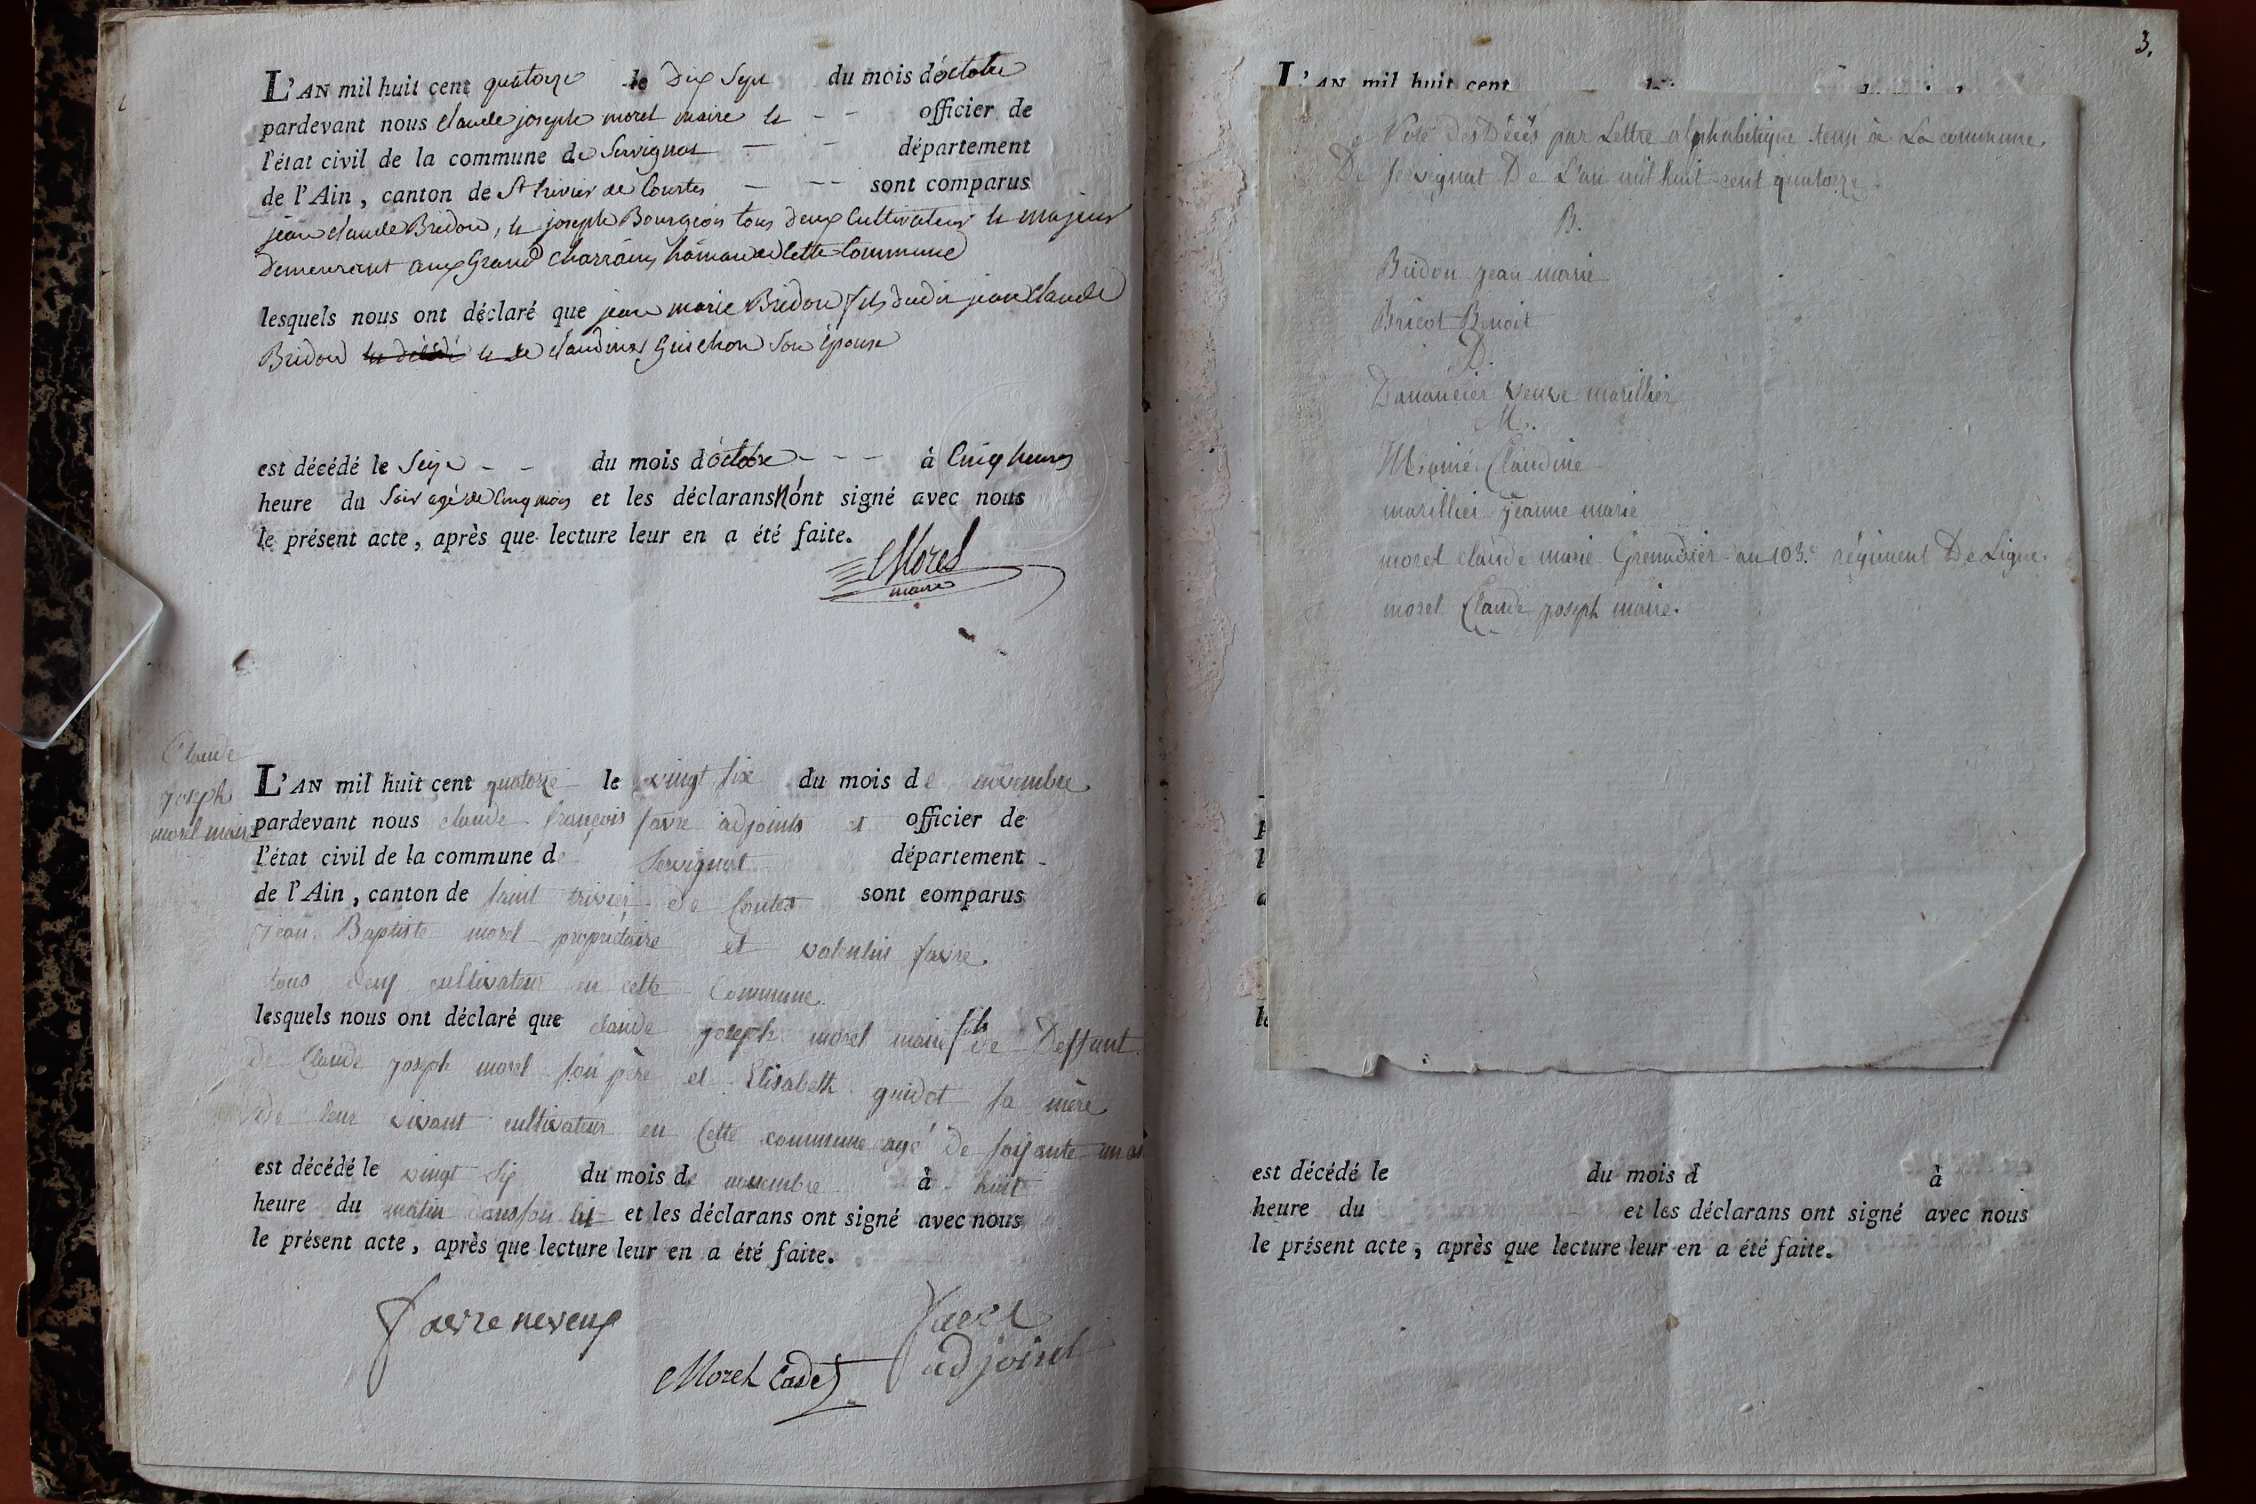 L'AN mil huit cent quatorze le Dix Sept du mois d'octobre
pardevant nous Claude joseph morel maire et - - officier de
l'état civil de la commune de Servignat — - département
de l'Ain, canton de St trivier de Courtes — -- sont comparus
jean claude Bridon, et joseph Bourgeois tous deux Cultivateurs et majeurs
Demeurant aux Grand Charrains hameau de Cette Commune
lesquels nous ont déclaré que jean marie Bridon fils dudit jean Claude
Bridon et de claudine Guichon Son épouse
est décédé le Seize - - du mois d'octobre - - - à Cinq heures
heure du Soir agé de Cinq mois et les déclarans N'ont signé avec nous
le présent acte, après que lecture leur en a été faite.
Morel
maire
Claude
joseph
morel maire
L'AN mil huit cent quatorze le vingt six du mois de novembre
pardevant nous claude françois favre adjoints et officier de
l'état civil de la commune de Servignat département
de l'Ain, canton de saint trivier de Courtes sont comparus
jean Baptiste morel propriétaire et valentin favre
tous deux cultivateur en cette Commune
lesquels nous ont déclaré que claude joseph morel maire fils de Deffunt
De Claude joseph morel son père et Elisabeth guidot sa mère
De leur vivant cultivateur en Cette commune agé De soixante un an
est décédé le vingt six du mois de novembre à huit
heure du matin dans son lit et les déclarans ont signé avec nous
le présent acte, après que lecture leur en a été faite.
favre neveux
Morel Cadet
favre
adjoint
3.
L'AN mil huit cent
Décès par Lettre alphabétique tenu à La commune
De Servignat De L'an mil huit cent quatorze
B.
Bridon jean marie
Bricot Benoit
D.
Dananeier veuve marillier
M.
Claudine
marillier jeanne marie
morel claude marie Grenadier au 103.e régiment De Ligne.
morel Claude joseph maire.
est décédé le du mois d à
heure du et les déclarans ont signé avec nous
le présent acte, après que lecture leur en a été faite.